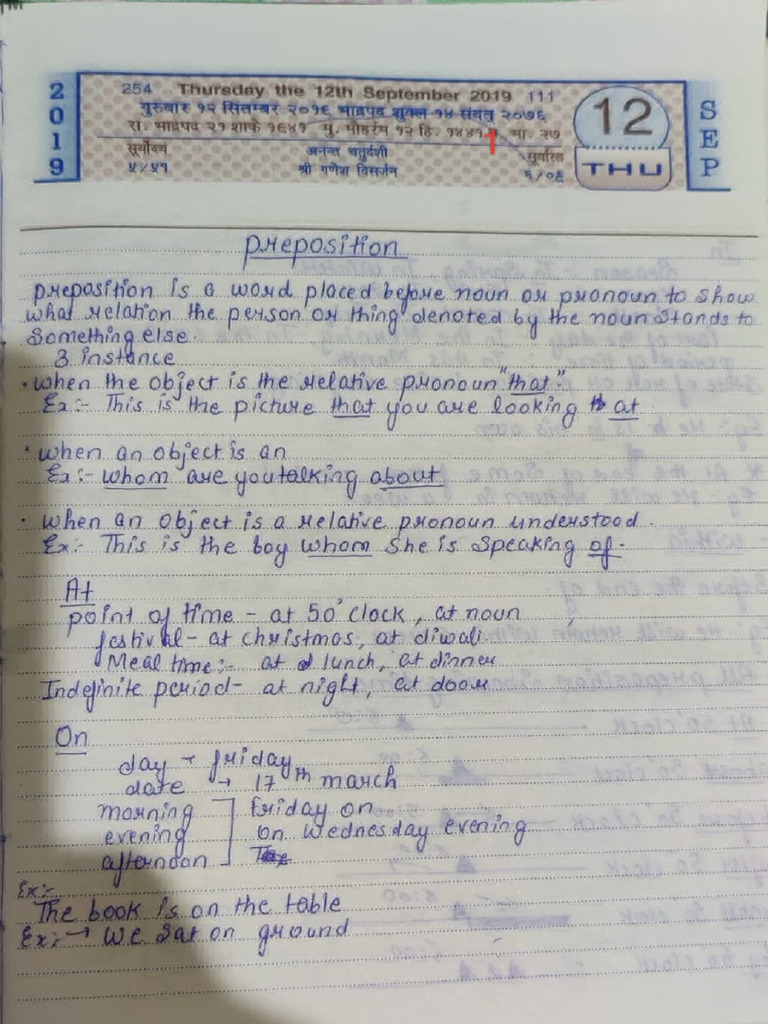 2019
254 Thursday the 12th September 2019 111
गुरुवार १२ सितम्बर २०१९ भाद्रपद शुक्ल १४ संवत् २०७६
रा. भाद्रपद २१ शाके १९४१ मु. मोहर्रम १२ हि. १४४१ भा. २७
सूर्योदय अनन्त चतुर्दशी सूर्यास्त
५/५१ श्री गणेश विसर्जन ६/०६
12
THU
SEP
preposition
preposition is a word placed before noun or pronoun to show
what relation the person or thing denoted by the noun stands to
Something else.
3 instance
• when the object is the relative pronoun "that."
Ex :- This is the picture that you are looking at
• when an object is an
Ex :- whom are you talking about
• when an object is a relative pronoun understood.
Ex :- This is the boy whom she is speaking of.
At
point of time - at 5 0'clock, at noun
festival - at christmas, at diwali.
Meal time :- at lunch, at dinner
Indefinite period - at night, at door
On
day - friday
date → 17th march
morning ] Friday on
evening ] on wednesday evening
afternoon ]
Ex :-
The book is on the table
Ex :- → We sat on ground